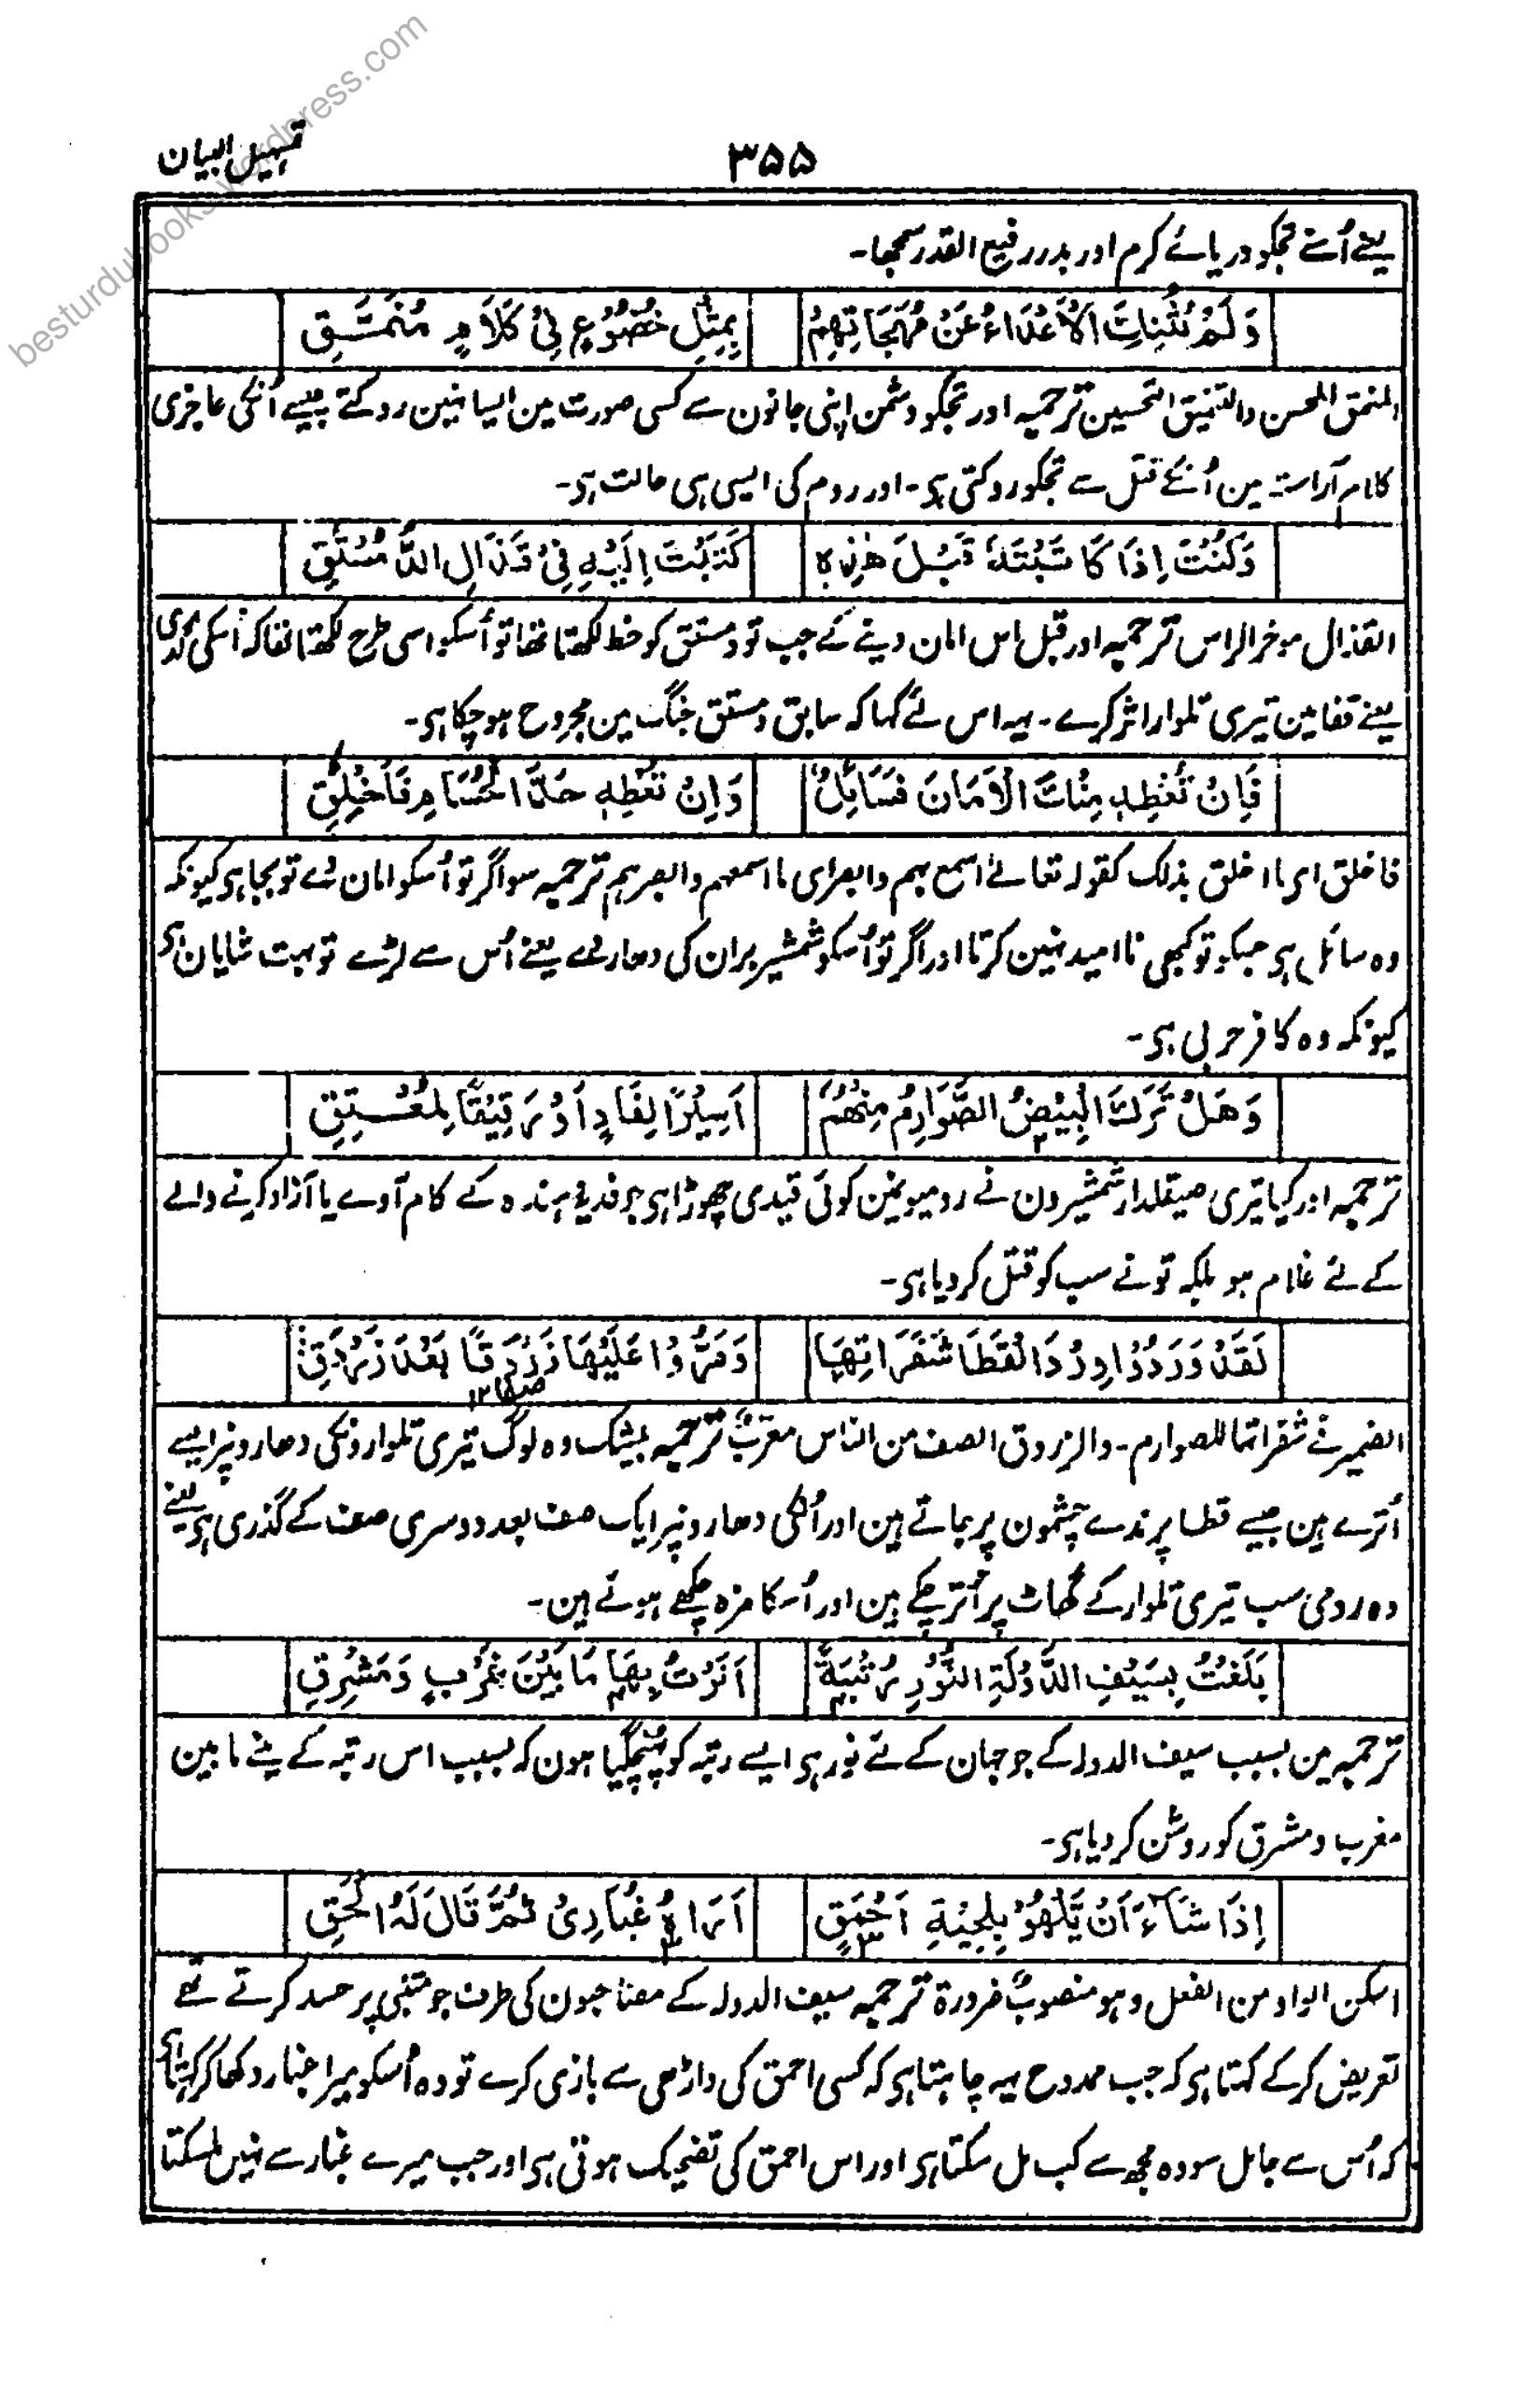 تسہیل البیان
۳۵۵
یعنے اُسنے تجکو دریائے کرم اور بدر رفیع القدر سمجھا۔
وَلَمْ يُثْنِكَ الْأَعْدَاءُ عَنْ مُهَجَاتِهِمْ بِمِثْلِ خُضُوْعٍ فِيْ كَلَامٍ مُنَمَّقِ
المنمق المحسن والتنمیق التحسین ترجمہ اور تجکو دشمن اپنی جانون سے کسی صورت مین ایسا نہین روکتے جیسے اُنکی عاجزی
کلام آراستہ مین اُنکے قتل سے تجکو روکتی ہے۔ اور روم کی ایسی ہی حالت ہے۔
وَكُنْتَ اِذَا كَاتَبْتَهٗ قَبْلَ هٰذِهٖ كَتَبْتَ اِلَيْهِ فِيْ قَذَالِ الدُّمُسْتُقِ
القذال موخر الراس ترجمہ اور قبل اس امان دینے کے جب تو دمستق کو خط لکھتا تھا تو اُسکو اسی طرح لکھتا تھا کہ اُسکی گدی
یعنے قفا مین تیری تلوار اثر کرے۔ یہ اس لئے کہا کہ سابق دمستق جنگ مین مجروح ہو چکا ہے۔
فَاِنْ تُعْطِهٖ مِنْكَ الْاَمَانَ فَسَائِلٌ وَاِنْ تُعْطِهٖ حَدَّ الْحُسَامِ فَاَخْلِقِ
فاخلق ای ما اخلق بذلک کقولہ تعالےٰ اسمع بہم وابصر ای ما اسمعہم وابصرہم ترجمہ سو اگر تو اُسکو امان دے تو بجا ہے کیونکہ
وہ سائل ہے جسکو تو کبھی نا امید نہین کرتا اور اگر تو اُسکو شمشیر بران کی دھار دے یعنے اُس سے لڑے تو بہت شایان ہے
کیونکہ وہ کافر حربی ہے۔
وَهَلْ تَرَكَ الْبِيْضُ الصَّوَارِمُ مِنْهُمُ اَسِيْرًا لِفَادٍ اَوْ رَقِيْقًا لِمُعْتِقِ
ترجمہ اور کیا تیری صیقلدار شمشیرون نے رومیونمین کوئی قیدی چھوڑا ہے جو فدیہ دہندہ کے کام آوے یا آزاد کرنے والے
کے لئے غلام ہو بلکہ تو نے سب کو قتل کر دیا ہے۔
لَقَدْ وَرَدُوْا وِرْدَ الْقَطَا شَفَرَاتِهَا وَمَرُّوْا عَلَيْهَا زَرْدَقًا بَعْدَ زَرْدَقِ
صف ۱۲
الضمیر فی شفراتہا للصوارم۔ والزردق الصف من الناس معربٌ ترجمہ بیشک وہ لوگ تیری تلوارونکی دھارونپر ایسے
اُترے ہین جیسے قطا پرندے چشمون پر جاتے ہین اور اُنکی دھارونپر ایک صف بعد دوسری صف کے گذری ہے یعنے
وہ رومی سب تیری تلوار کے گھاٹ پر اُتر چکے ہین اور اُسکا مزہ چکھے ہوئے ہین۔
بَلَغْتُ بِسَيْفِ الدَّوْلَةِ النُّوْرِ رُتْبَةً اَنَرْتُ بِهَا مَا بَيْنَ غَرْبٍ وَمَشْرِقِ
ترجمہ مین بسبب سیف الدولہ کے جو جہان کے لئے نور ہے ایسے رتبہ کو پہنچگیا ہون کہ بسبب اس رتبہ کے مینے مابین
مغرب و مشرق کو روشن کر دیا ہے۔
اِذَا شَاءَ اَنْ يَّلْهُوْ بِلِحْيَةِ اَحْمَقٍ اَرَاهُ غُبَارِيْ ثُمَّ قَالَ لَهُ الْحَقِ
اسکن الواو من الفعل وہو منصوبٌ ضرورۃ ترجمہ سیف الدولہ کے مصاحبون کی طرف جو متنبی پر حسد کرتے تھے
تعریض کرکے کہتا ہے کہ جب ممدوح یہ چاہتا ہے کہ کسی احمق کی داڑھی سے بازی کرے تو وہ اُسکو میرا غبار دکھا کر کہتا ہے
کہ اُس سے جا مل سو وہ مجھ سے کب مل سکتا ہے اور اس احمق کی تضحیک ہوتی ہے اور جب میرے غبار سے نہین مل سکتا
besturdubooks.wordpress.com